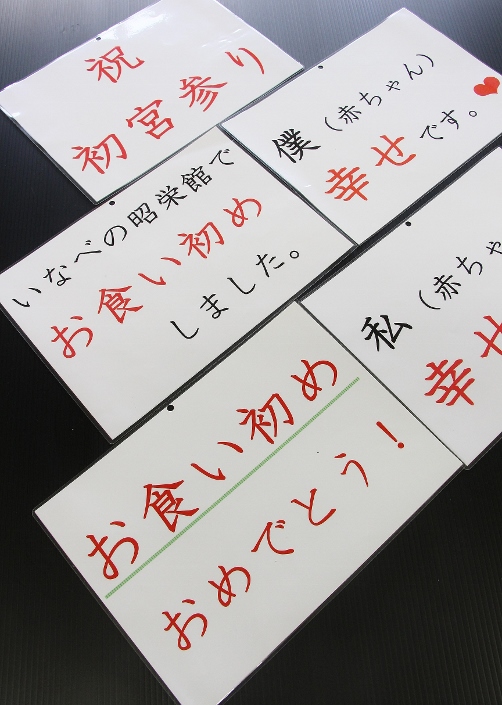 祝
初宮参り
僕(赤ちゃん)
幸せです。
いなべの昭栄館で
お食い初め
しました。
私(赤ちゃ
幸せ
お食い初め
おめでとう!